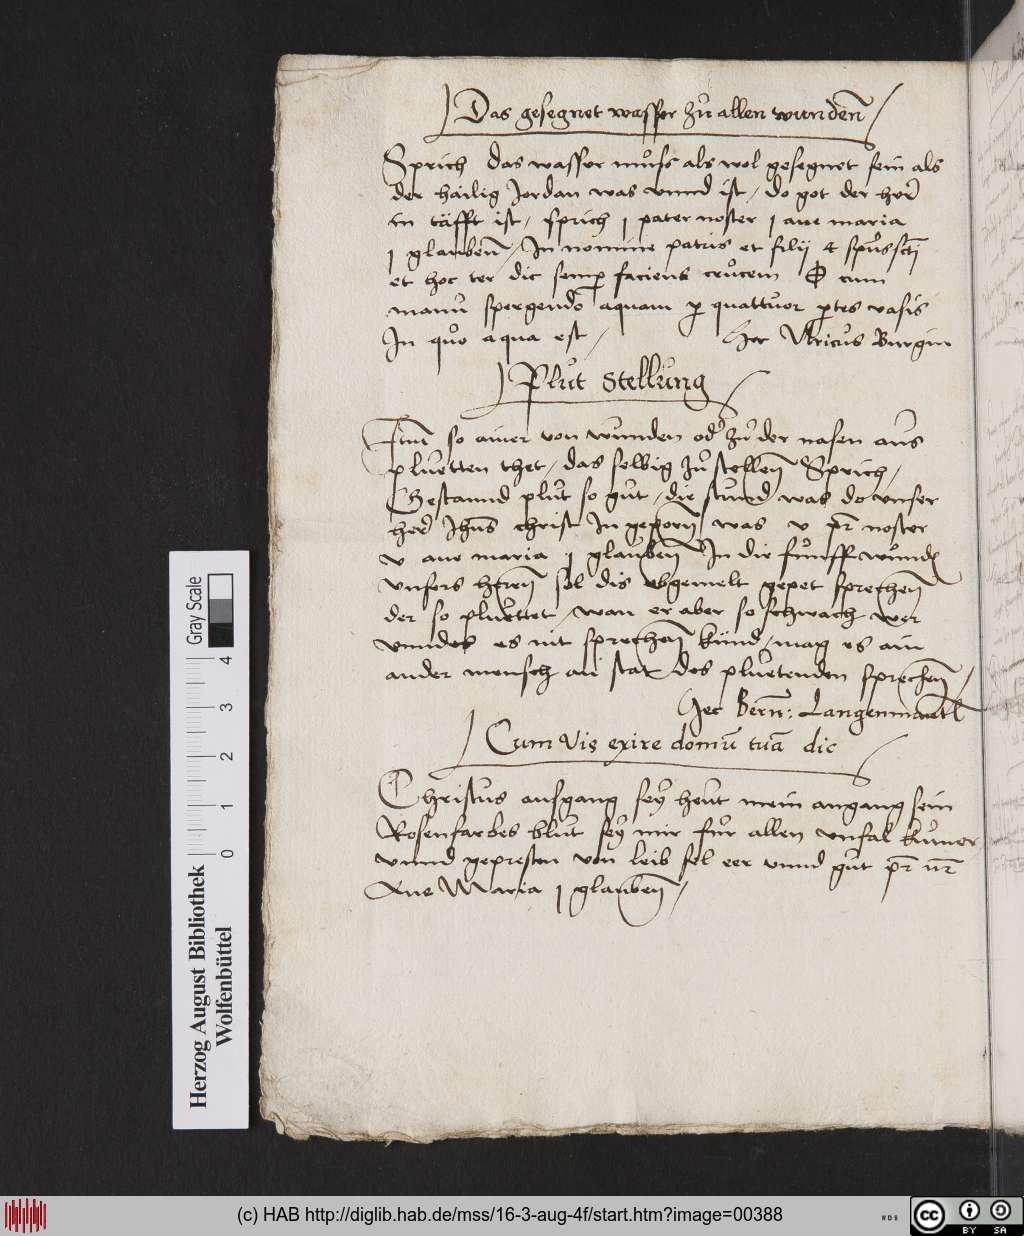 Das gesegnet wasser zů allen wunden̄
Sprich das wasser můss als wol gesegnet sein als
der hailig Jordan was vnnd ist / do got der her̄
in täfft ist / sprich j pater noster j aue maria
j glauben̄ / In nomine patris et filij & spůssctj
et hoc ter dic semp faciens crůcem cum
manů spergendo aquam p quattůor ptes vasis
In qůo aqua est / Hec Vlricůs Burgin
Plůt stellůng
Itm̄ so ainer von wůnden od zů der nasen aůs
plůetten thet / das selbig zů stellen̄ Sprich /
Gestannd plůt so gůt / die stůnd was do vnser
her̄ Jhůs christ In geporn̄ was v pr̄ noster
v aue maria j glaůben̄ In die fůnff wůnd
vnsers heren̄ sol dis obgemelt gepet sprechen̄
der so plůettet / wan er aber so schwach wer
vnnd es nit sprechen̄ kůnd / mag es ain
ander mensch an stat des plůetenden sprechen̄ /
Hec Bern̄: Langenmantl
Cum vis exire domū tuā dic
Christůs aůsgang seÿ heůt mein angang sein
Rosenfarbes blůt seÿ mir fůr allen vnfal kůmer
vnnd gepresten von leib sel eer vnnd gůt pr̄ nr̄
Aue Maria j glauben̄ /
Gray Scale
4 3 2 1 0
Herzog August Bibliothek
Wolfenbüttel
(c) HAB http://diglib.hab.de/mss/16-3-aug-4f/start.htm?image=00388
WDB
cc BY SA